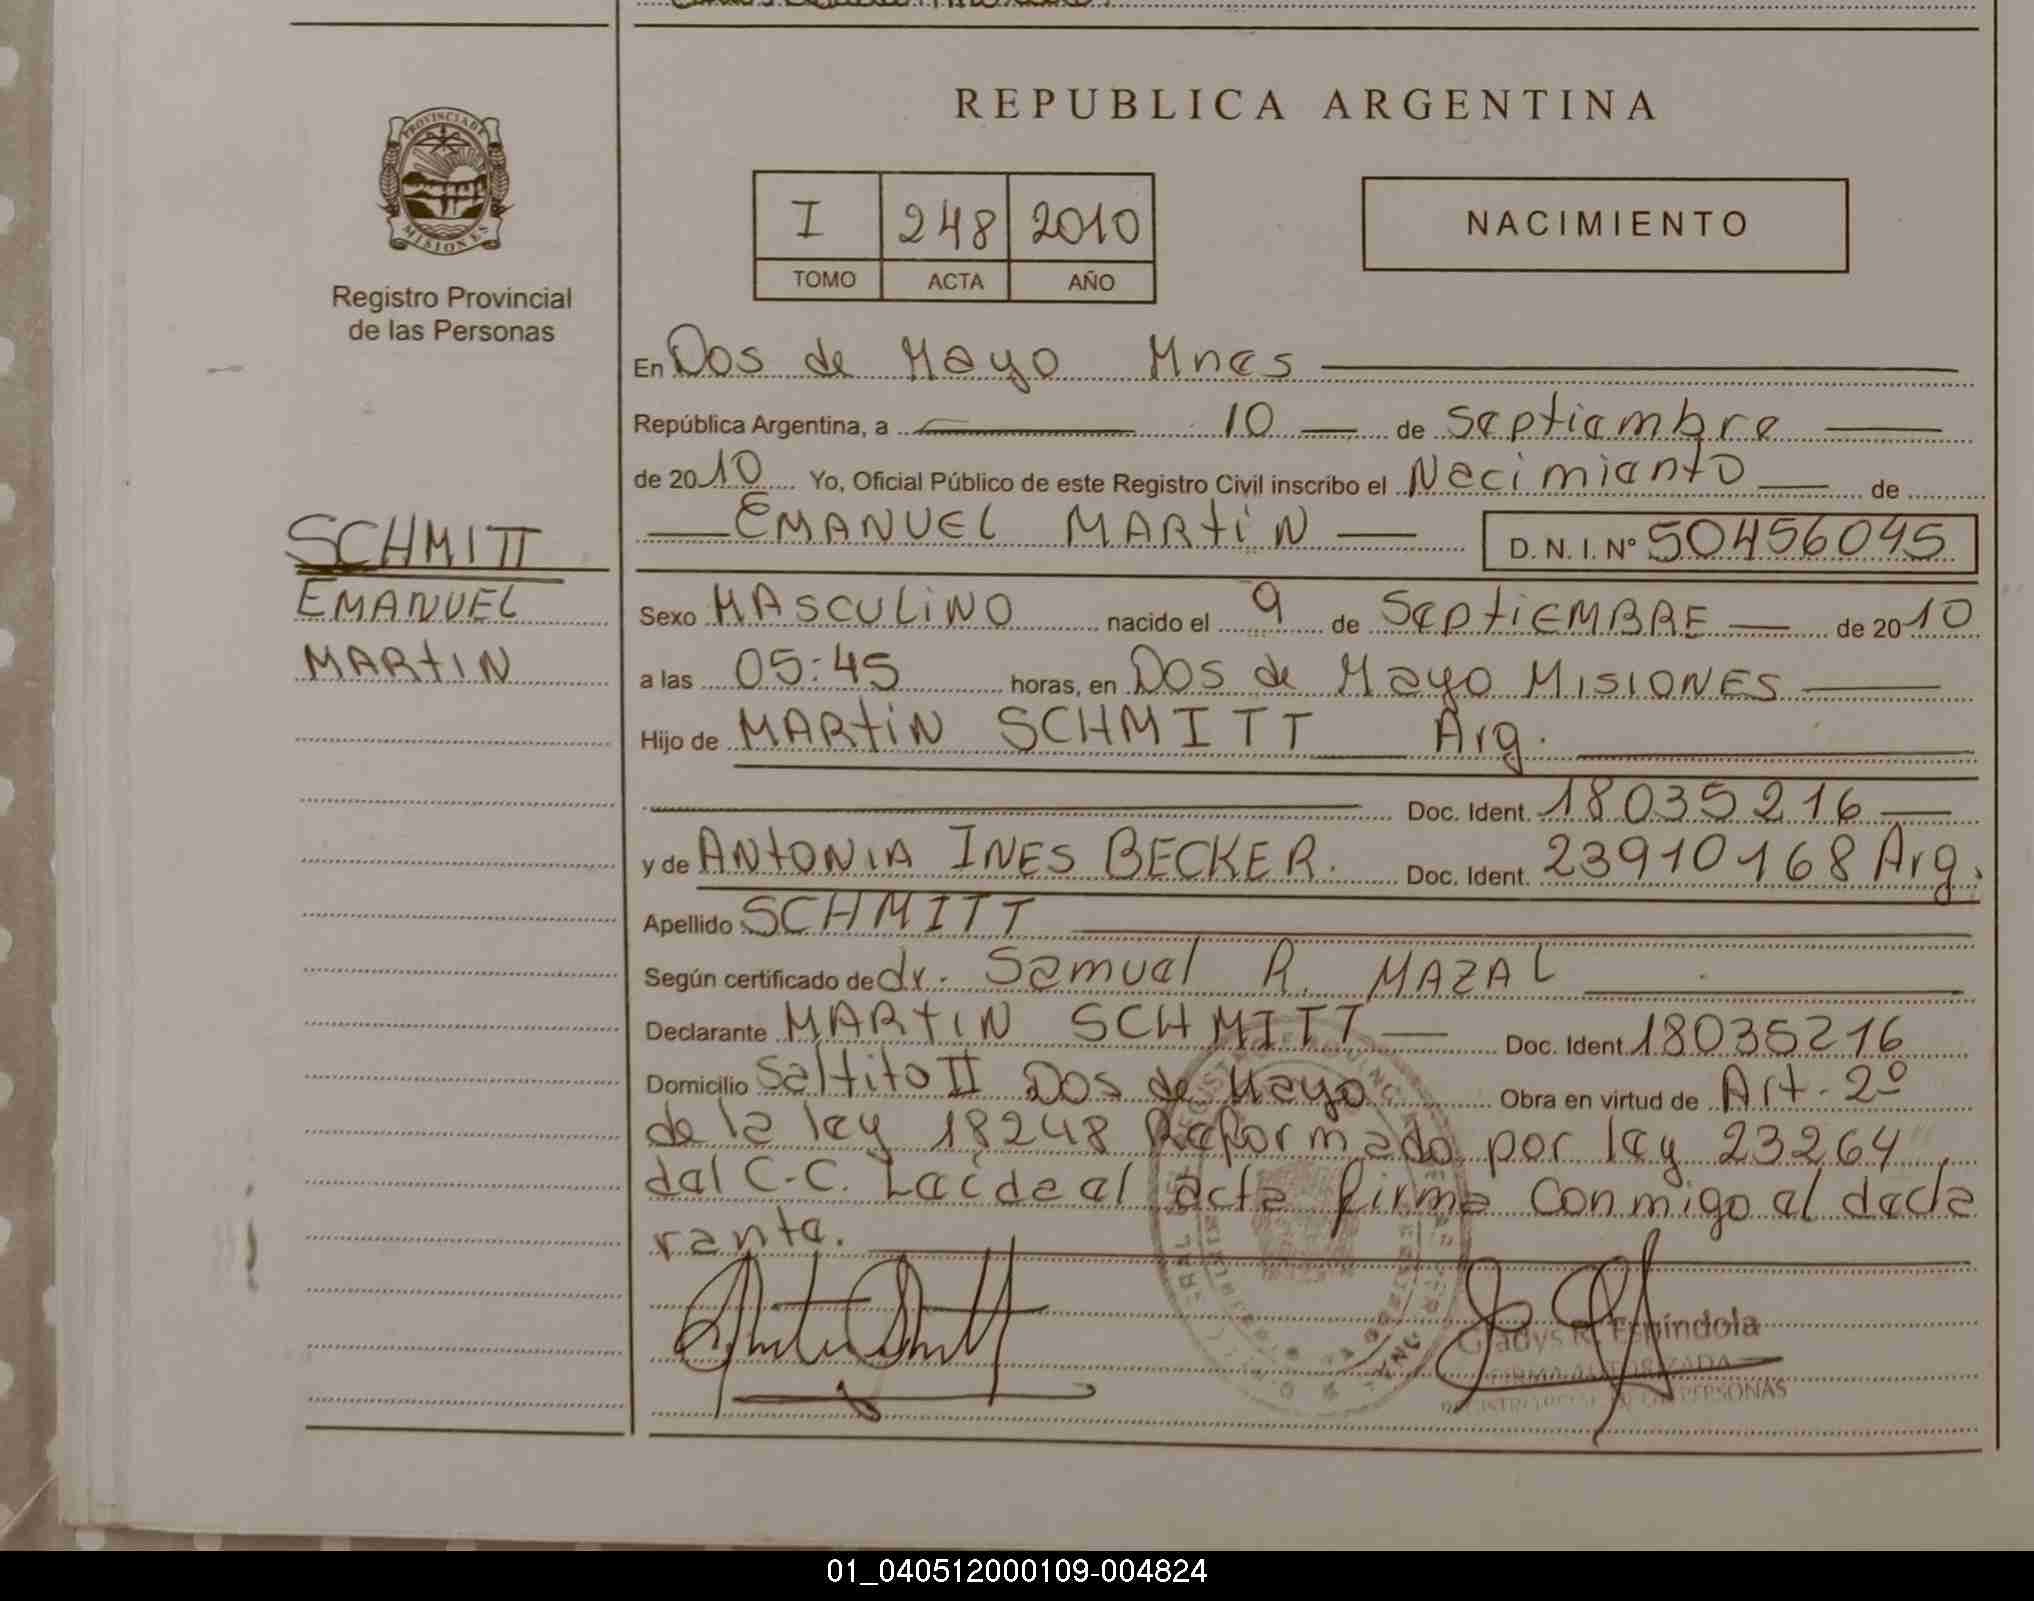 PROVINCIA DE
MISIONES
Registro Provincial
de las Personas
SCHMITT
EMANUEL
MARTIN
REPUBLICA ARGENTINA
I 248 2010
TOMO ACTA AÑO
NACIMIENTO
En Dos de Mayo Mnes
República Argentina, a 10 de Septiembre
de 2010 Yo, Oficial Público de este Registro Civil inscribo el Nacimiento de
EMANUEL MARTIN D. N. I. Nº 50456045
Sexo MASCULINO nacido el 9 de SEPTIEMBRE de 2010
a las 05:45 horas, en Dos de Mayo MISIONES
Hijo de MARTIN SCHMITT Arg.
Doc. Ident. 18035216
y de ANTONIA INES BECKER. Doc. Ident. 23910168 Arg.
Apellido SCHMITT
Según certificado de dr. Samuel R. MAZAL
Declarante MARTIN SCHMITT Doc. Ident 18035216
Domicilio Saltito II Dos de Mayo Obra en virtud de Art. 2º
de la ley 18248 Reformado por ley 23264
del C.C. Leída el acta firma conmigo el decla
rante.
Gladys R. Espíndola
FIRMA AUTORIZADA
PERSONAS
01_040512000109-004824